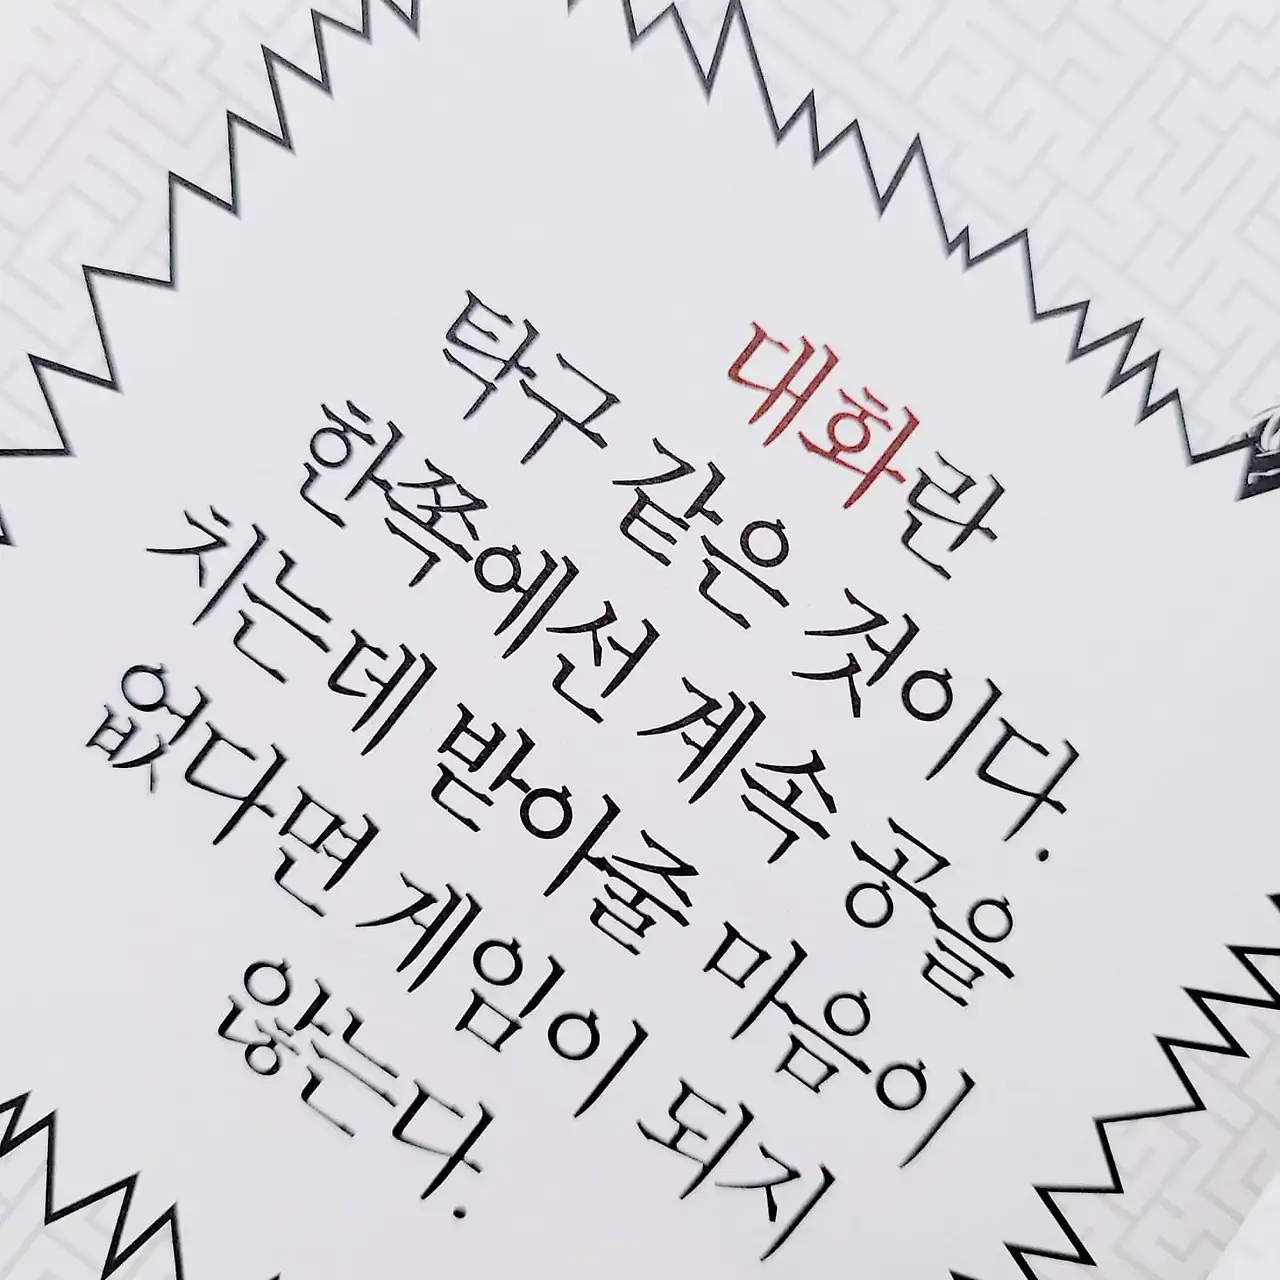 대화란
탁구 같은 것이다.
한쪽에선 계속 공을
치는데 받아줄 마음이
없다면 게임이 되지
않는다.